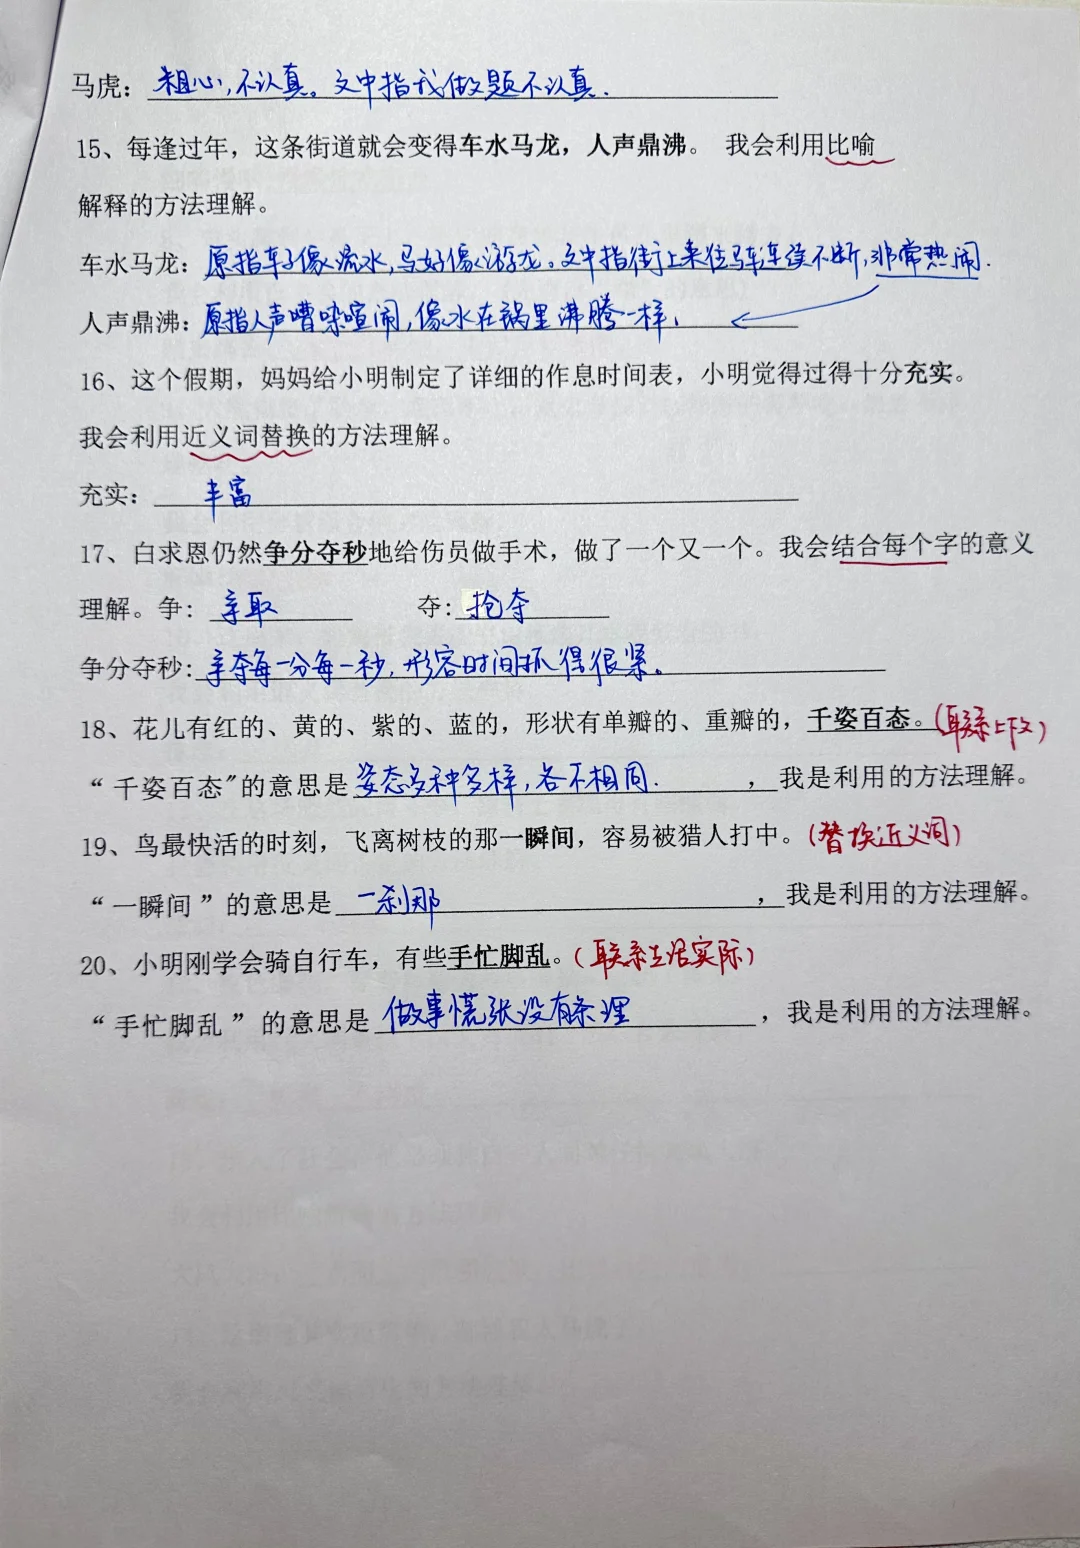 马虎：粗心，不认真。文中指我做题不认真.
15、每逢过年，这条街道就会变得车水马龙，人声鼎沸。 我会利用比喻
解释的方法理解。
车水马龙：原指车子像流水，马好像游龙。文中指街上来往马车连续不断，非常热闹.
人声鼎沸：原指人声嘈杂喧闹，像水在锅里沸腾一样.
16、这个假期，妈妈给小明制定了详细的作息时间表，小明觉得过得十分充实。
我会利用近义词替换的方法理解。
充实： 丰富
17、白求恩仍然争分夺秒地给伤员做手术，做了一个又一个。我会结合每个字的意义
理解。争： 争取 夺：抢夺
争分夺秒：争夺每一分每一秒，形容时间抓得很紧。
18、花儿有红的、黄的、紫的、蓝的，形状有单瓣的、重瓣的，千姿百态。（联系上下文）
“千姿百态"的意思是姿态多种多样，各不相同. ，我是利用的方法理解。
19、鸟最快活的时刻，飞离树枝的那一瞬间，容易被猎人打中。（替换近义词）
“一瞬间”的意思是 一刹那 ，我是利用的方法理解。
20、小明刚学会骑自行车，有些手忙脚乱。（联系生活实际）
“手忙脚乱”的意思是 做事慌张没有条理 ，我是利用的方法理解。